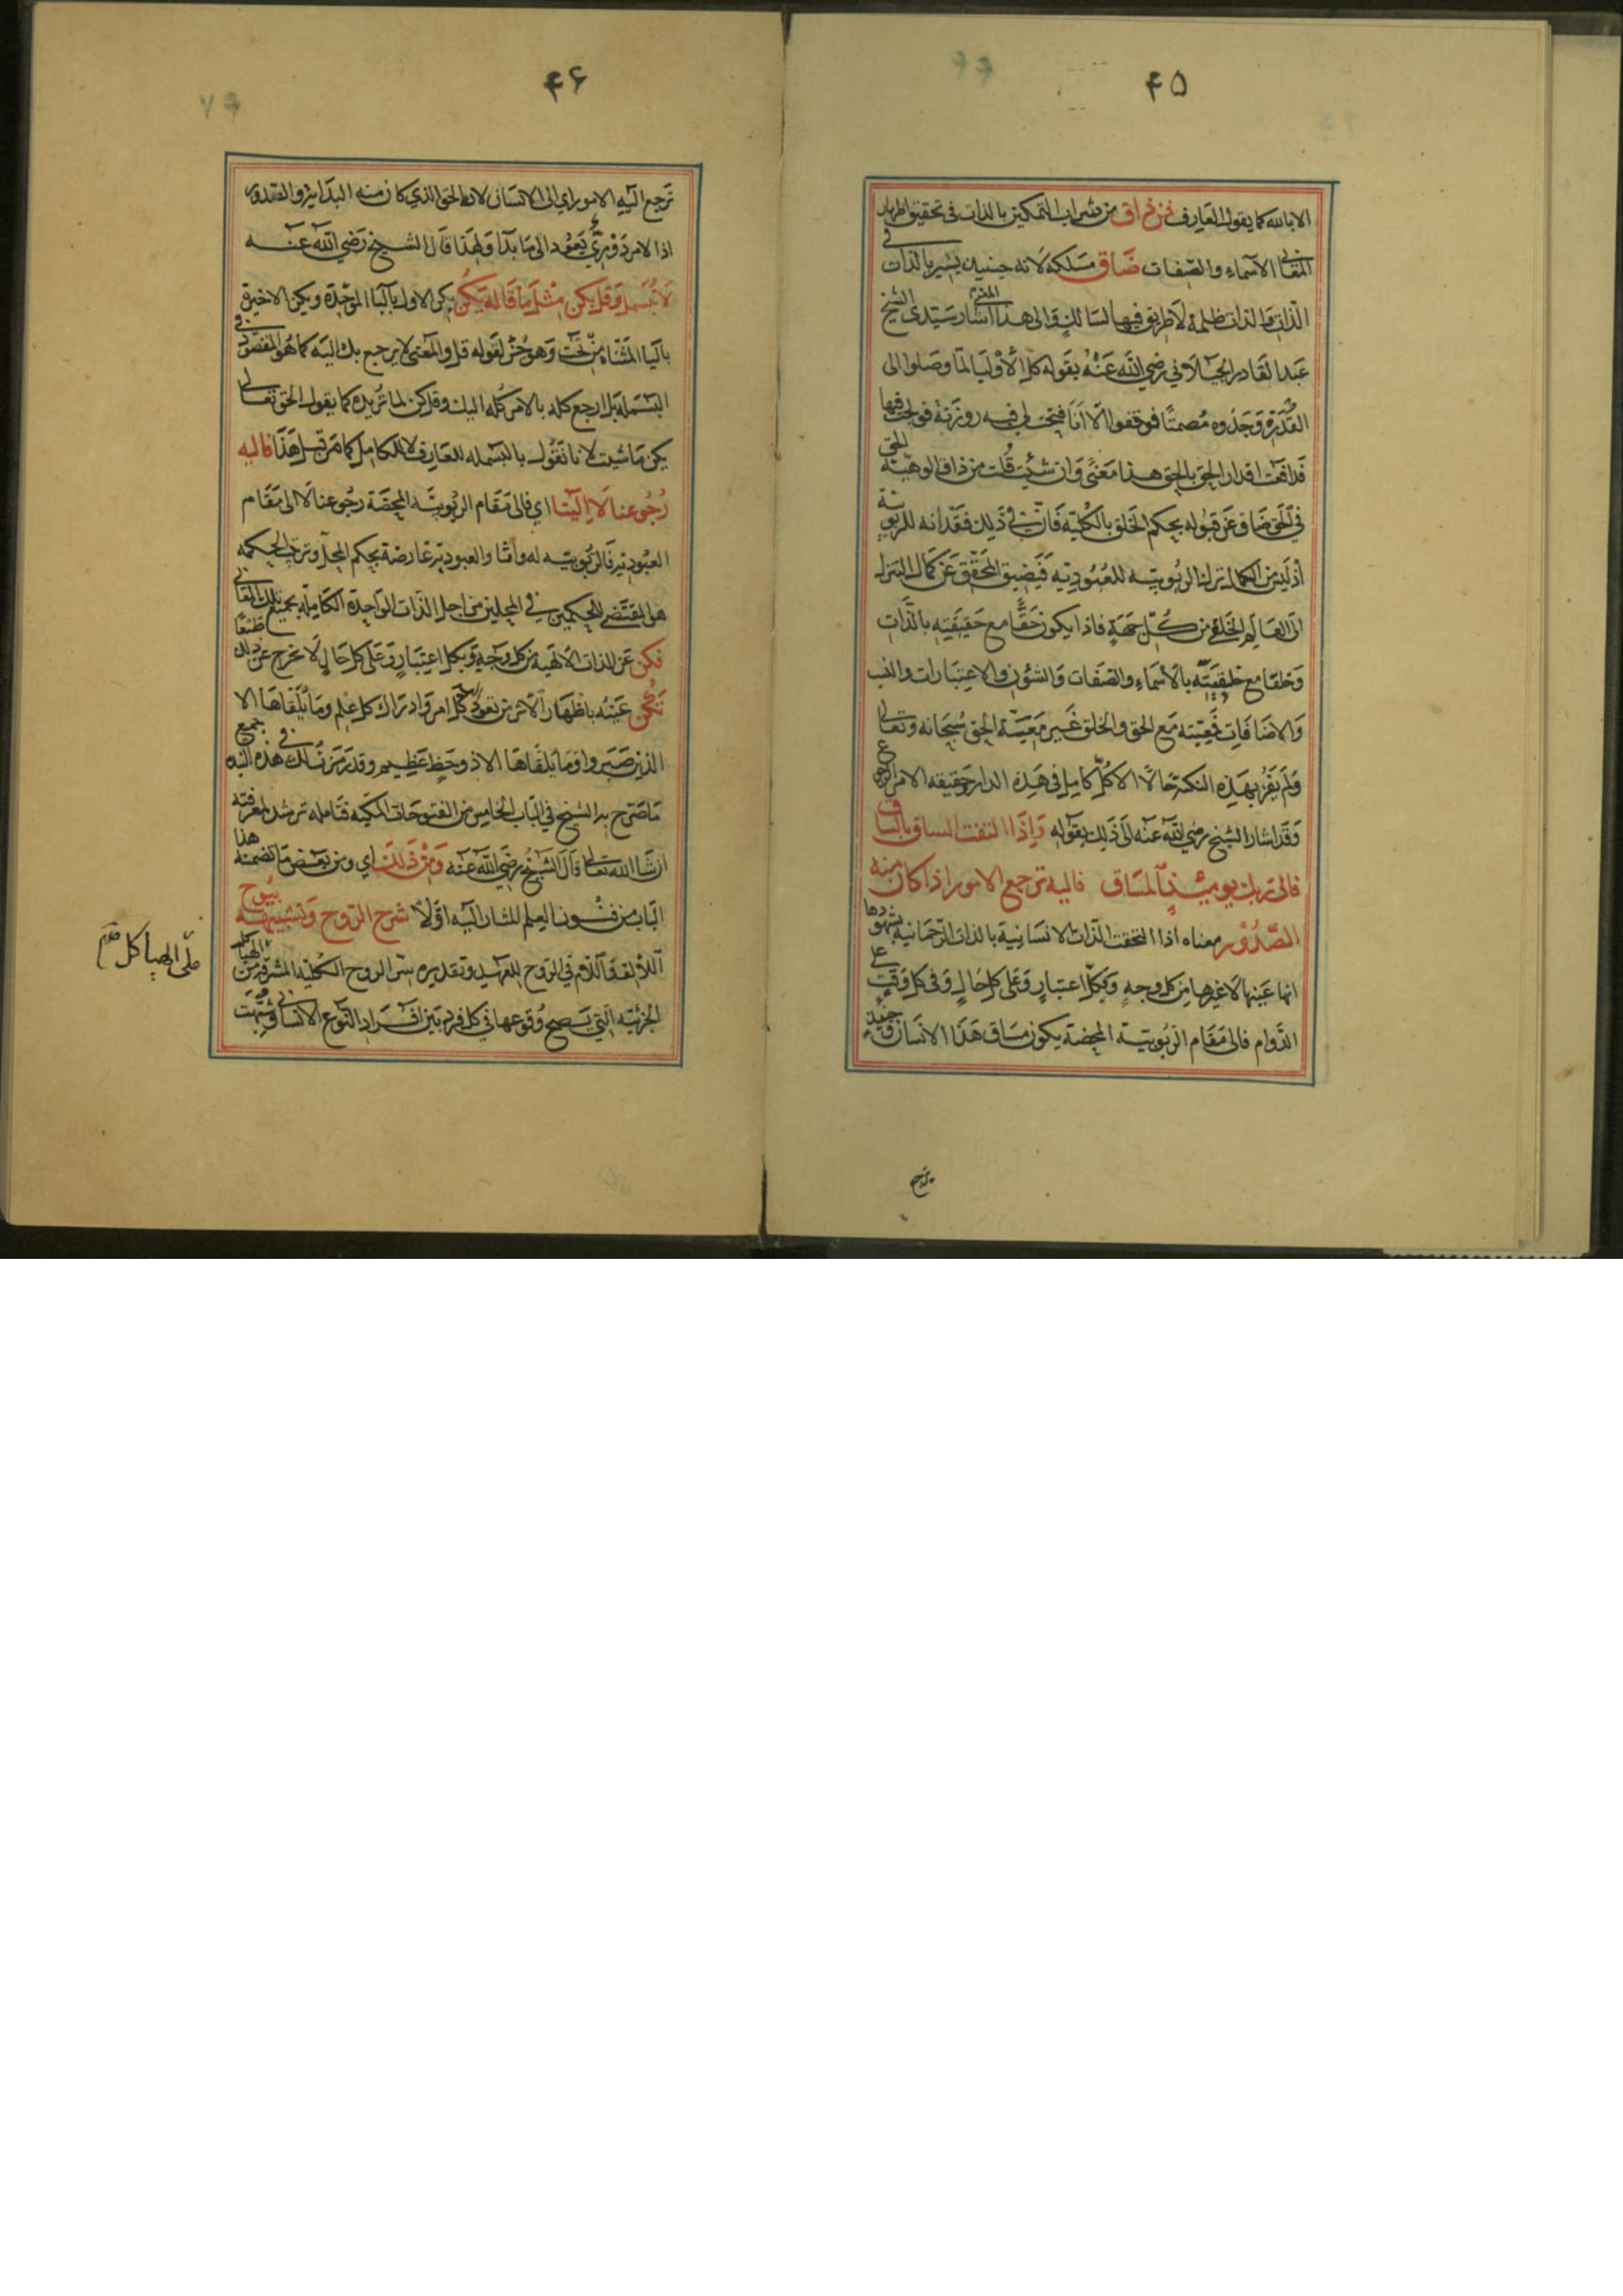 ۴۵
الا بالله كما يقول العارف فمن ذاق من شراب التمكين بالذات في تحقيق اظهار
المعاني الاسماء والصفات ضاق مسلكه لانه حينئذ يسير بالذات في
الذات والذات ظلمة لا طريق فيها لسالك والى هذا المعنى اشار سيدى الشيخ
عبد القادر الجيلاني رضي الله عنه بقوله كل الاوليا لما وصلوا الى
القدر وجدوه مصمتا فوقفوا الا انا فتحت لي فيه روزنة فولجت فيها
فدافعت اقدار الحق بالحق هذا معنى وان شئت قلت من ذاق الوهية الحق
في الحق ضاق عن قبوله بحكم الخلق بالكلية فان في ذلك فقدانه للربوبية
اذ ليس من الكمال تزلت الربوبية للعبودية فيضيق المحقق عن كمال التنزل
الى العالم الخلقي من كل جهة فاذا يكون حقا مع حقيقيه بالذات
وخلقا مع خلقيته بالاسماء والصفات والشؤن والاعتبارات والنسب
والاضافات فمعيته مع الحق والخلق غير معيسة الحق سبحانه وتعالى
ولم يفز بهذه النكتة حالا الا كل كامل في هذه الدار حقيقه الامر
وقد اشار الشيخ رضي الله عنه الى ذلك بقوله واذا التفت الساق بالساق
فالى ربك يومئذ المساق فاليه ترجع الامور اذا كان منه
الصدور معناه اذا التحقت الذات الانسانية بالذات الرحمانية بشهودها
انها عينها لا غيرها من كل وجه وبكل اعتبار وعلى كل حال وفى كل وقت على
الدوام فالى مقام الربوبية المحضة يكون مساق هذا الانسان حينئذ
ترجع
۴۶
ترجع اليه الامور اي الى الانسان لانه الحق الذي كان منه البدايت والصدور
اذا الامر دوري يعود الى ما بدا ولهذا قال الشيخ رضي الله عنه
لا تبسمل وقل يكن مثل ما قاله يكن يكن الاول بالبا الموحدة ويكن الاخير في
باليا المثناه من تحت وهو جزء لقوله قل والمعنى لا يرجع بك اليه كما هو المقصود في
البسملة بل ارجع كله بالامر كله اليك وقل كن لما تريده كما يقول الحق تعالى
يكن ما شئت لانا نقول بالبسمله للعارف لا للكامل كما مر قبل هذا فاليه
رجوعنا لا الينا اي فالى مقام الربوبية المحضة رجوعنا لا الى مقام
العبودية فالربوبيه له ولنا والعبودية عارضة بحكم المحل وترتب الحكمه
هو المقتضي للحكمين في المحلين من اجل الذات الواحدة الكاملة بجميع تلك المعاني
فكن عن الذات الالهية من كل وجه وبكل اعتبار وعلى كل حال لا تخرج عن ذلك طبعا
تكن عينه باظهار الاثر من نفوذ كل امر وادراك كل علم وما يلقاها الا
الذين صبروا وما يلقاها الا ذو حظ عظيم وقد رمزنا لك هذه النبذه في جميع
ما صرح به الشيخ في الباب الخامس من الفتوحات المكيه فتامله ترشد لمعرفته
ان شا الله تعالى قال الشيخ رضي الله عنه ومن ذلك اي ومن بعض ما تضمنه هذا
الباب من فنون العلم المشار اليه اولا شرح الروح وتشبيهه بيوح
اللالف واللام في الروح للعهد وتقديره سر الروح الكلية المشرقة من الهياكل
الجزئية التي يصح وقوعها في كل فرد من افراد النوع الانساني وشبهت
على الهياكل